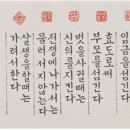 임금을섬긴다
효도로써
부모를섬긴다
벗을사귈때는
신의를지킨다
전쟁에나가서는
물러서지않는다
살생을할때는
가려서한다